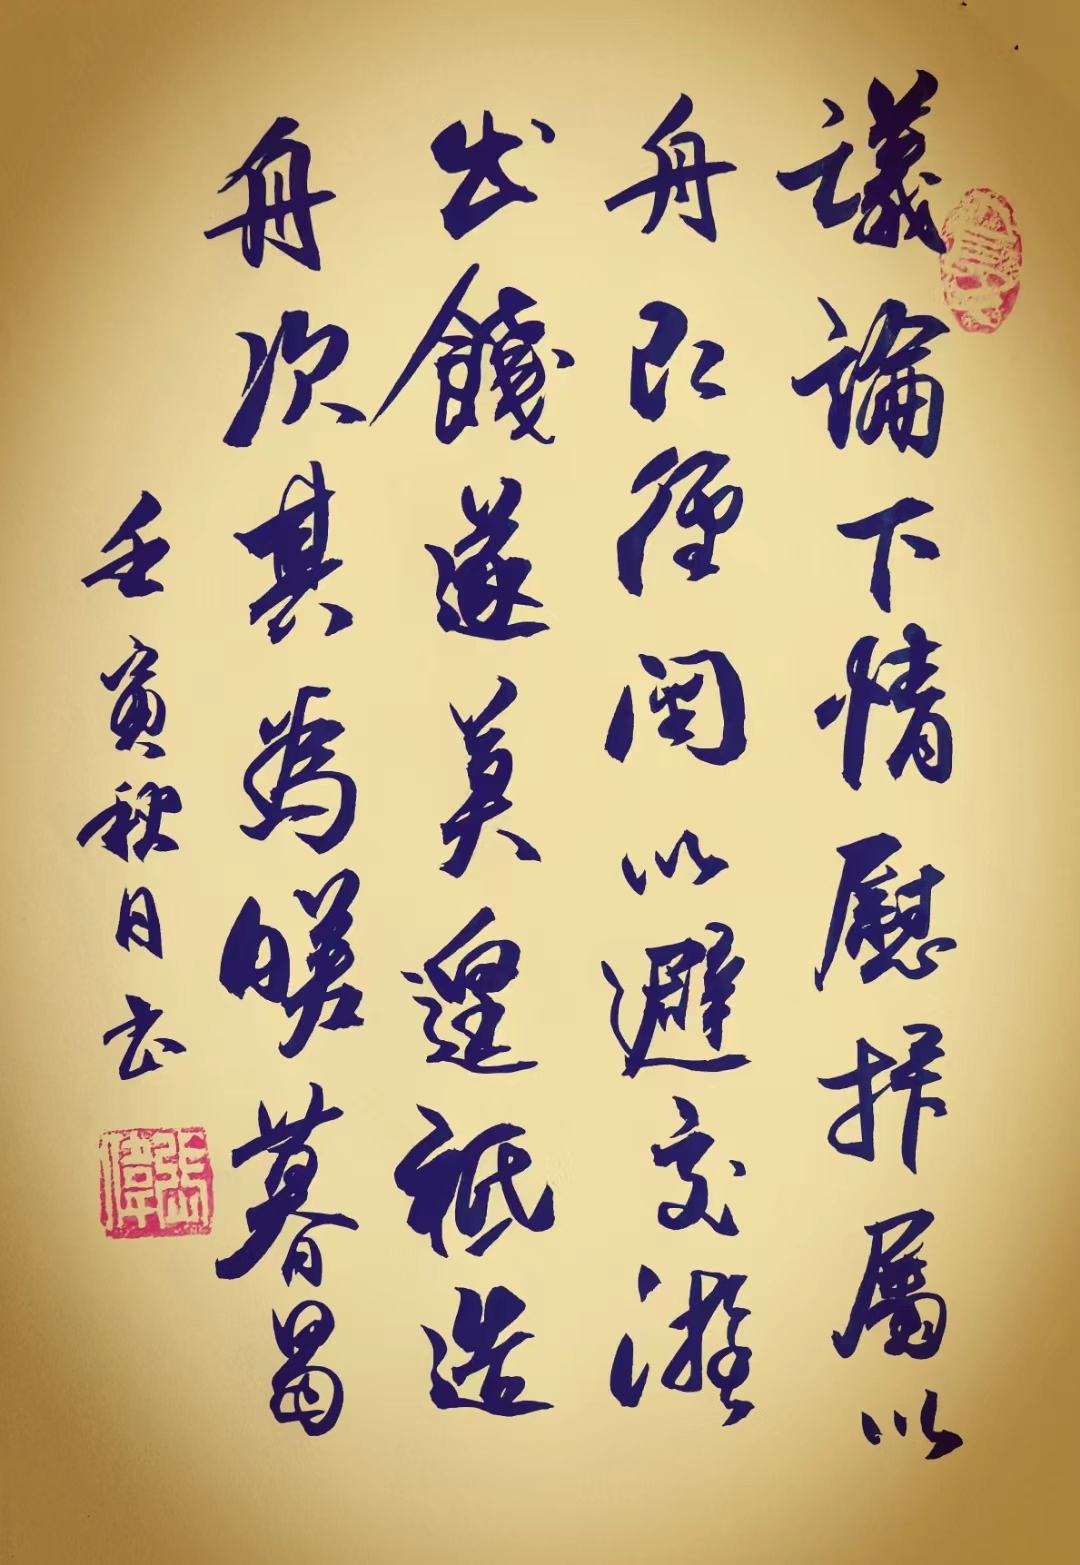 議論下情慰抃屬以
舟即徑以避交游
出餞遂莫遑祗造
舟次其為暮曷
壬寅秋日書
張偉